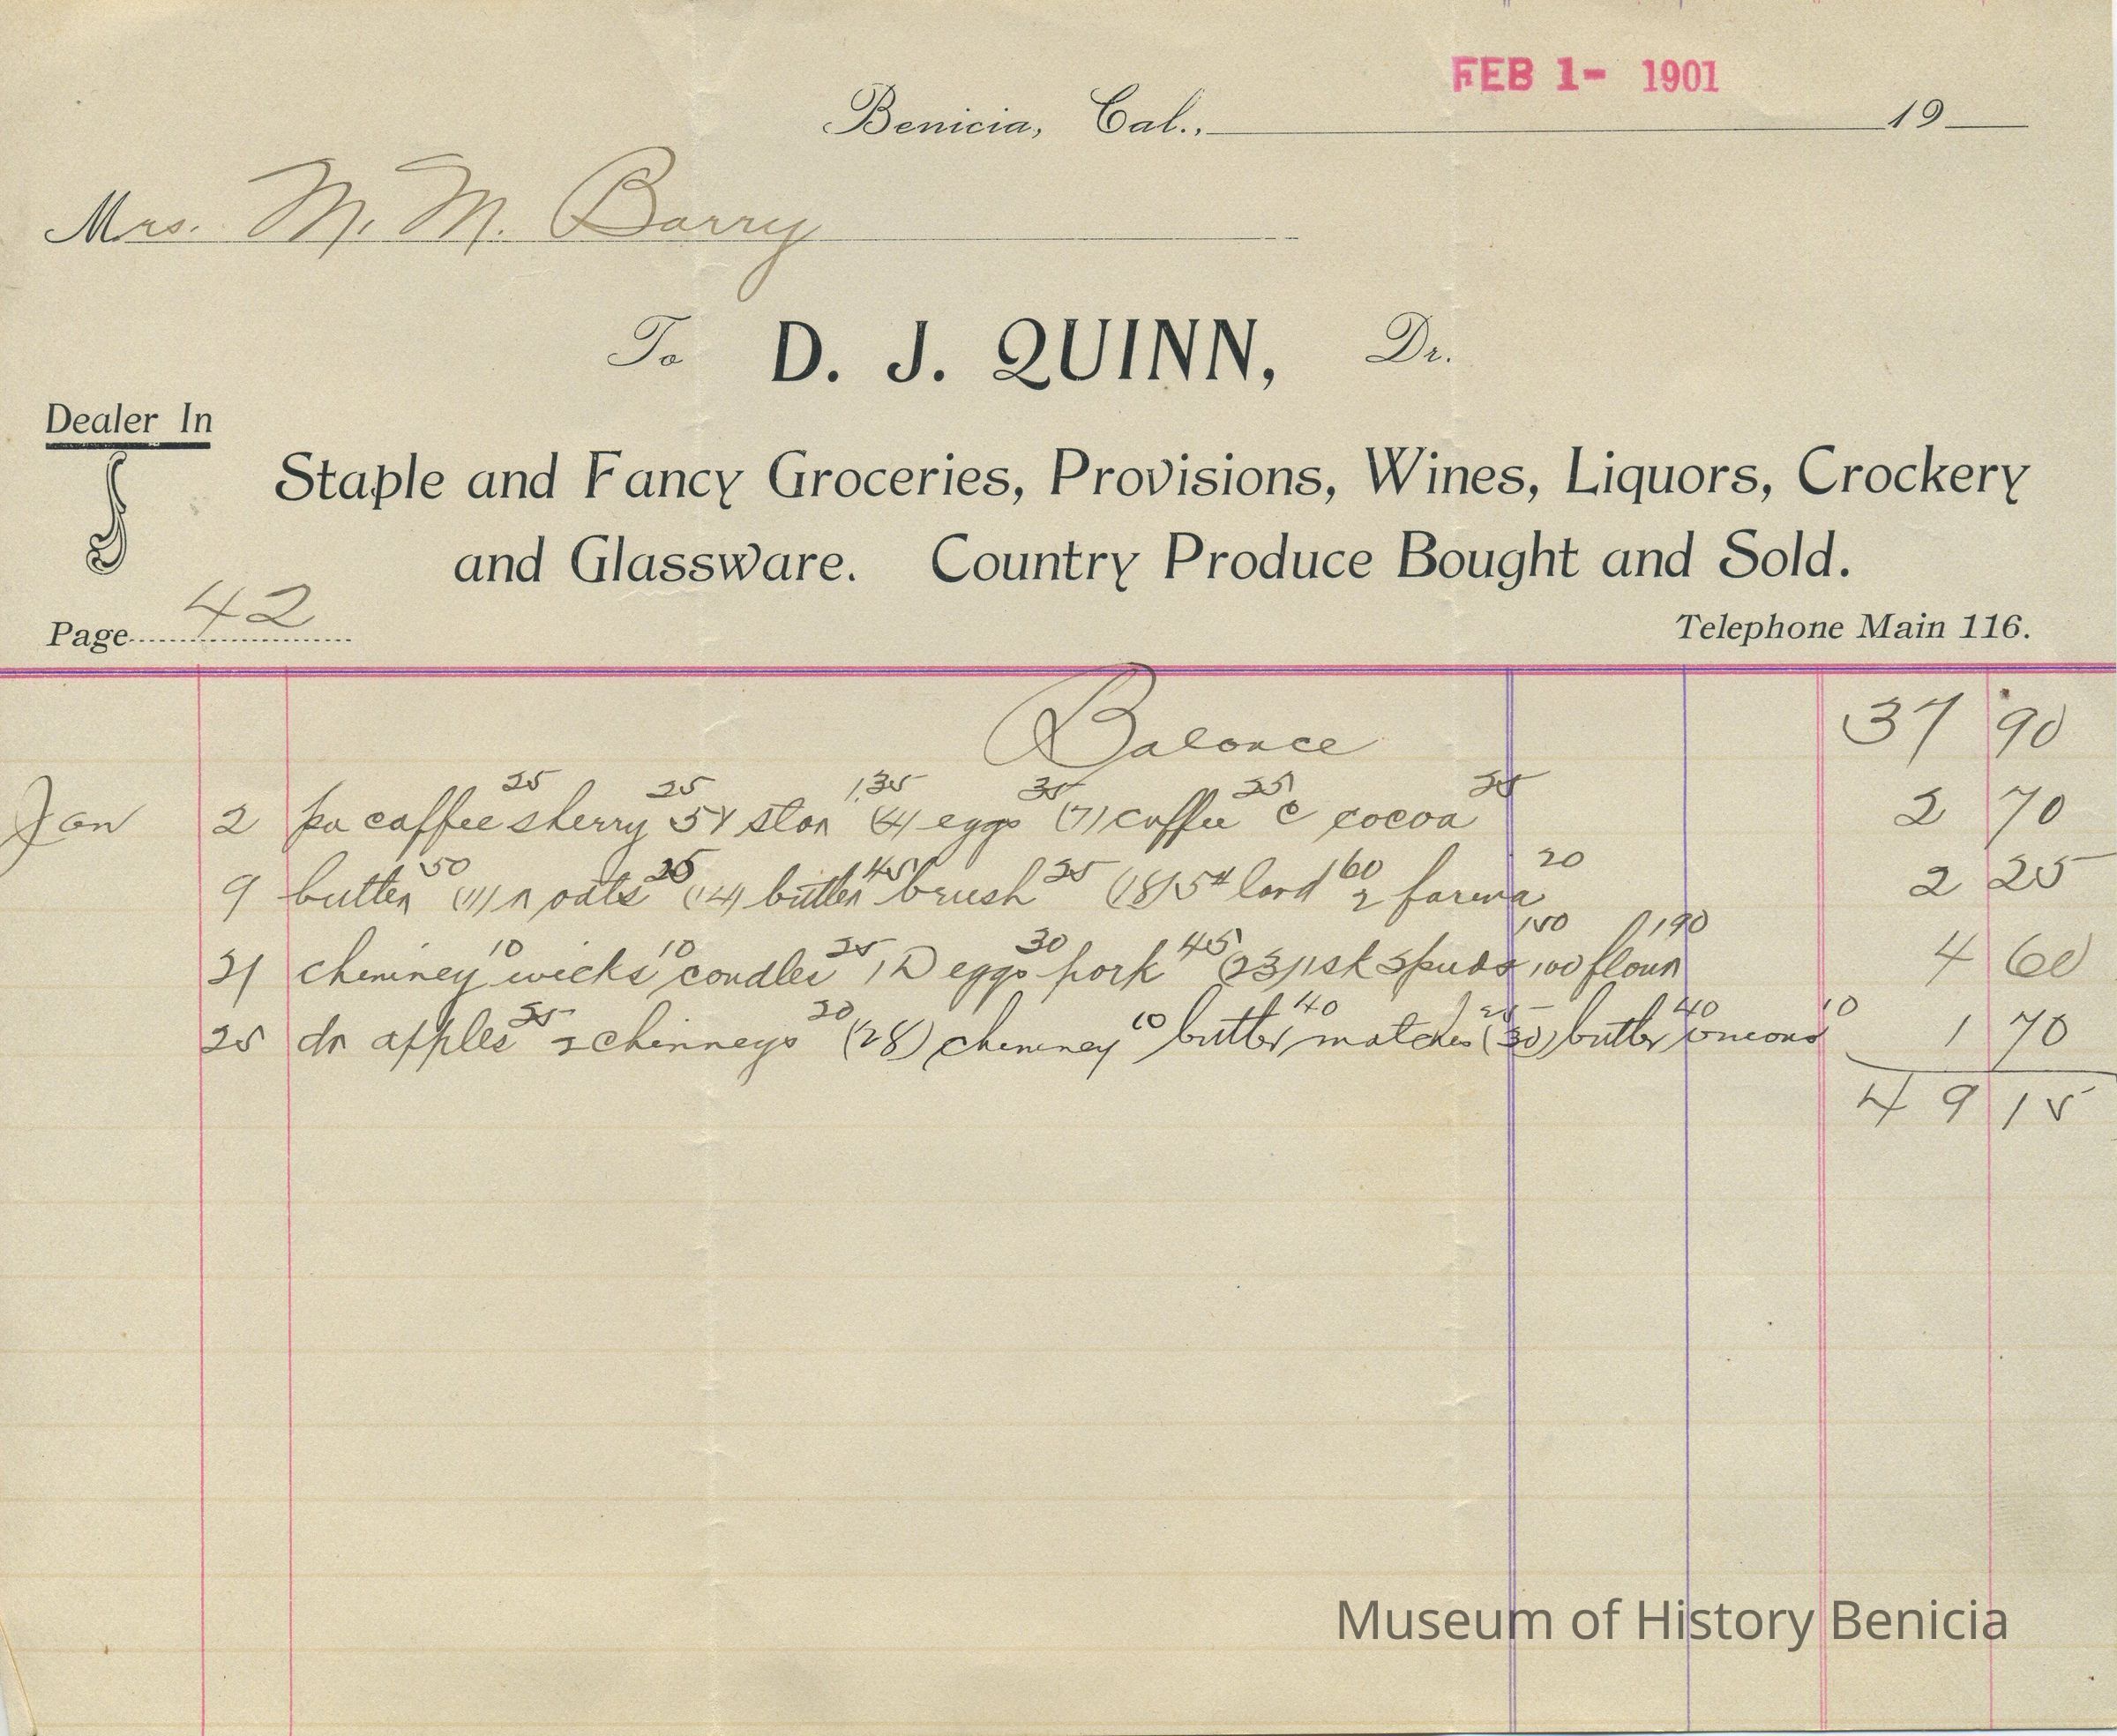 FEB 1- 1901
Benicia, Cal., 19
Mrs. M. M. Barry
To D. J. QUINN, Dr.
Dealer In
Staple and Fancy Groceries, Provisions, Wines, Liquors, Crockery
and Glassware. Country Produce Bought and Sold.
Page 42
Telephone Main 116.
Balance 37 90
25 25 1.35 35 25 25
Jan 2 coffee sherry (4) eggs (7) coffee c cocoa 2 70
50 25 45 25 60 20
9 butter (11) oats (14) butter brush (18) 5# lard 2 farina 2 25
10 10 25 30 45 150 190
21 chimney wicks candles 1 D eggs pork (23) 1 sk spuds 100 flour 4 60
25 20 10 40 25 40 10
25 dr apples 2 chimneys (28) chimney butter matches (30) butter onions 1 70
49 15
Museum of History Benicia